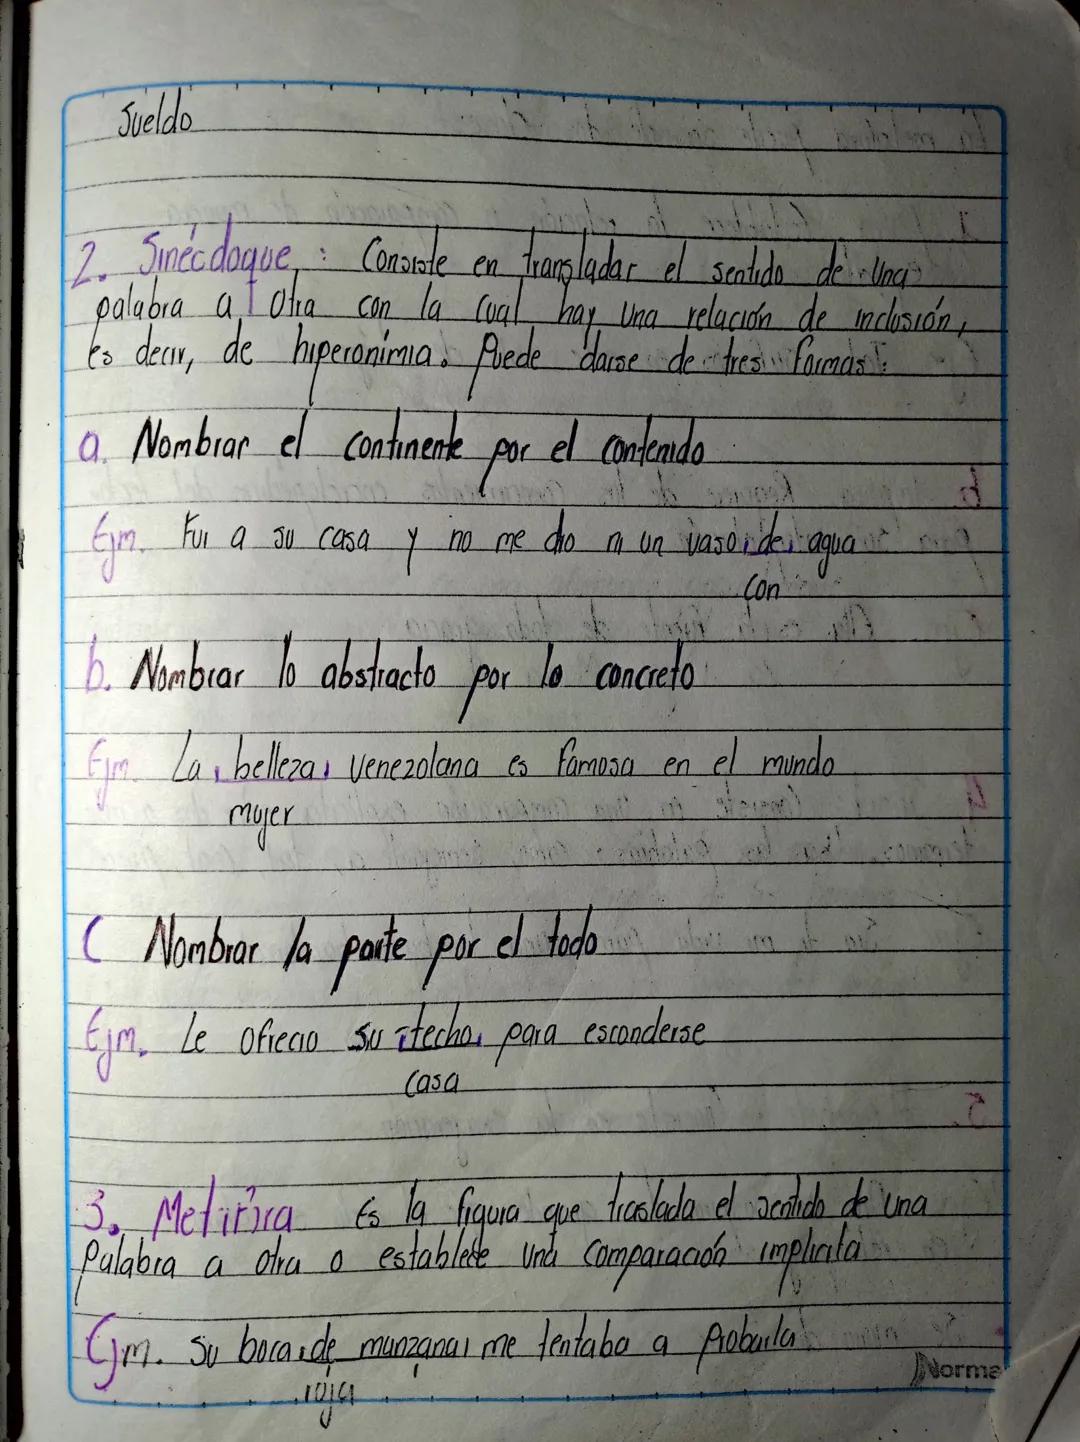 Sueldo
2. Sinécdoque : Consiste en transladar el sentido de una
palabra a otra con la cual hay una relación de inclusión,
es decir, de hiperonimia. Puede darse de tres formas:
a. Nombrar el continente por el contenido
Ejm. Fui a su casa y no me dio ni un vaso de agua
con
b. Nombrar lo abstracto por lo concreto
Ejm. La belleza venezolana es famosa en el mundo
mujer
C Nombrar la parte por el todo
Ejm. Le ofrecio su techo para esconderse
casa
3. Es la figura que traslada el sentido de una
palabra a otra o establece una comparación implicita
Ejm. Su boca de manzana me tentaba a probarla
roja
Norma